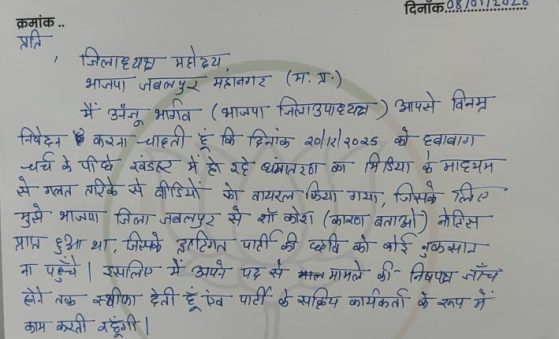 क्रमांक..
दिनाँक 08/01/2026
प्रति,
जिलाध्यक्ष महोदय,
भाजपा जबलपुर महानगर (म.प्र.)
मैं अँजू भार्गव (भाजपा जिलाउपाध्यक्ष) आपसे विनम्र
निवेदन करना चाहती हूँ कि दिनांक 20/12/2025 को हवाबाग
चर्च के पीछे खंडहर में हो रहे धर्मांतरण का मिडिया के माध्यम
से गलत तरिके से वीडियो को वायरल किया गया, जिसके लिए
मुझे भाजपा जिला जबलपुर से शॉ कोश (कारण बताओ) नोटिस
प्राप्त हुआ था, जिसके पार्टी की छवि को कोई नुकसान
ना पहुँचे। इसलिए में अपने पद से मामले की निष्पक्ष जाँच
होने तक स्तीफा देती हूँ एंव पार्टी के सक्रिय कार्यकर्ता के रूप में
काम करती रहूंगी।